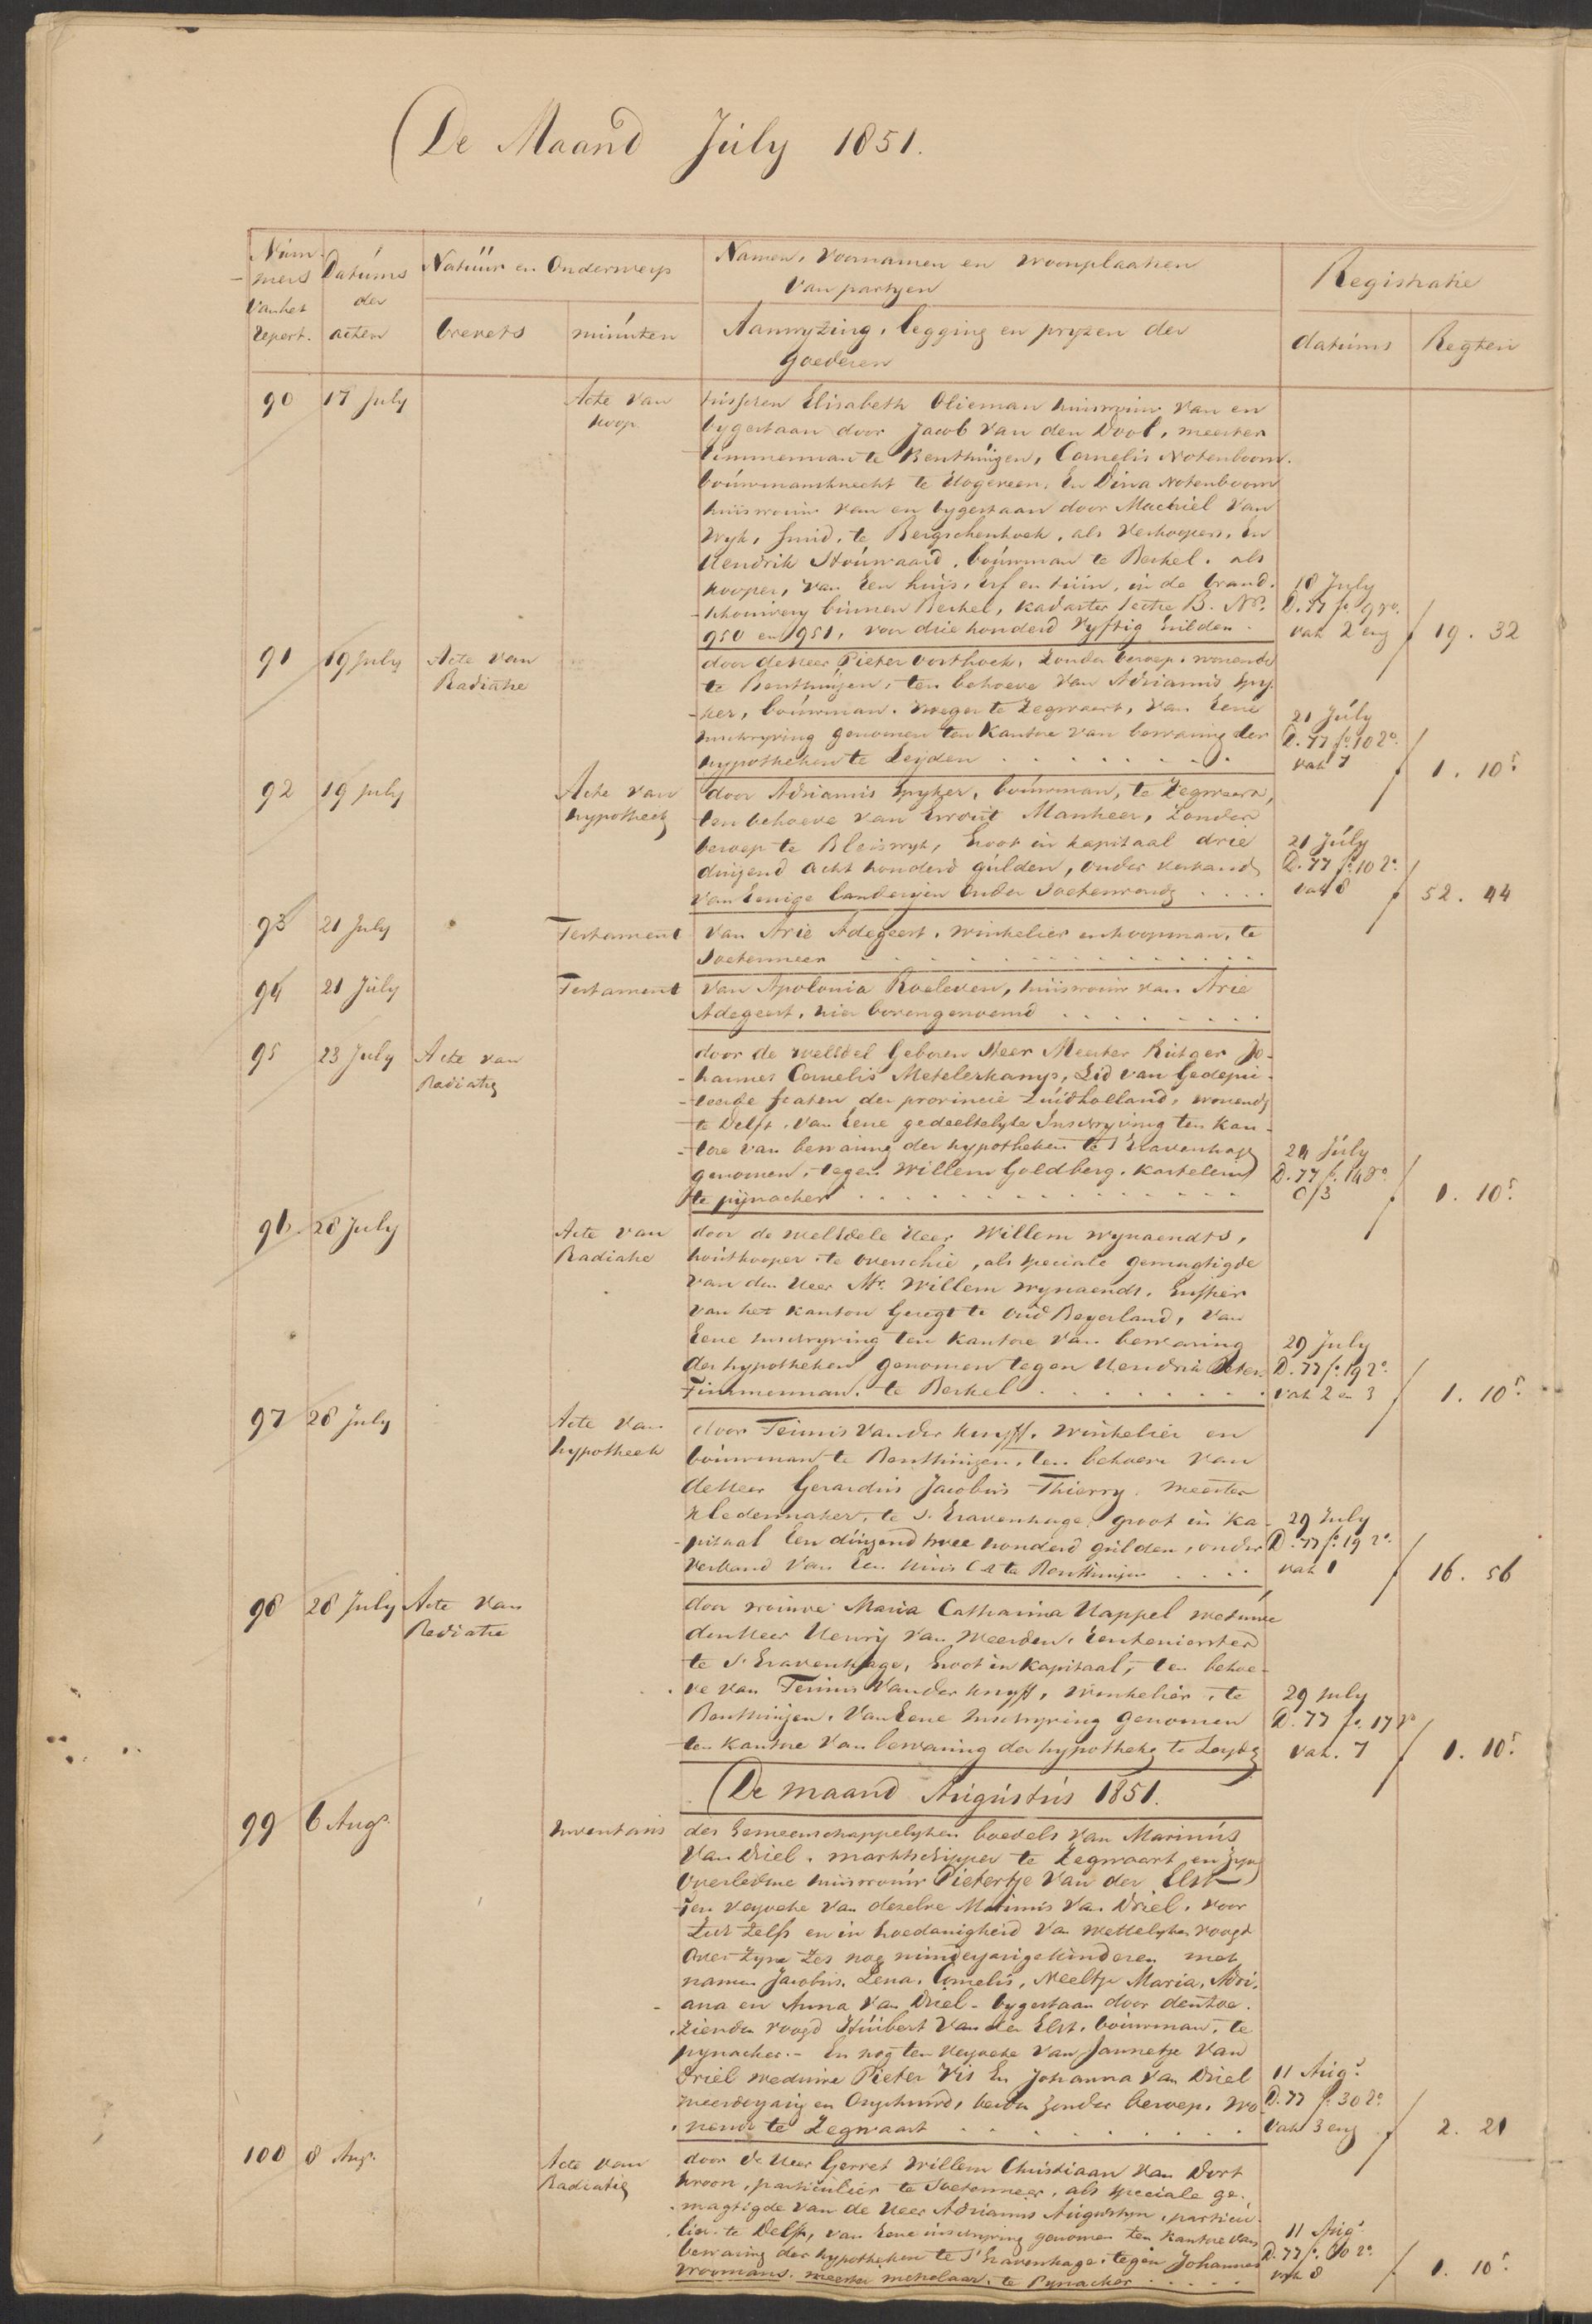 De Maand July 1851.
Num
mers
van het
repert.
Datums
der
acten
Natuur en Onderwerp
brevets
minuten
Namen, voornamen en woonplaatsen
van partyen
Aanwyzing, legging en pryzen der
goederen
Registratie
datums
Regten
90 17 July
Acte van
koop
tusschen Elisabeth Olieman huisvrouw van en
bygestaan door Jacob van den Dool, meester
timmerman te Benthuizen, Cornelis Notenboom.
bouwmansknecht te Hogeveen, En Dina Notenboom
huisvrouw van en bygestaan door Machiel van
Wyk, smid, te Bergschenhoek, als verkoopers, En
Hendrik Stouwaard, bouwman te Berkel, als
kooper, van Een huis, erf en tuin, in de brand.
schouwery binnen Berkel, kadaster sectie B. Nos.
950 en 951, voor driehonderd vyftig Gulden.
18 July
D. 77 fo. 9 ro.
vak 2 eng
f 19. 32
91 19 July Acte van
Radiatie
door de Heer Pieter Oosthoek, zonder beroep, wonende
te Benthuizen, ten behoeve van Adrianus Spy
ker, bouwman, vroeger te Zegwaart, van Eene
inschryving genomen ten kantore van bewaring der
hypotheken te Leijden
21 July
D. 77 fo. 10 vo.
vak 7
f 1. 10 5
92 19 July
Acte van
hypotheek
door Adrianus Spyker, bouwman, te Zegwaart,
ten behoeve van Ewout Manheer, zonder
beroep te Bleiswyk, Groot in kapitaal drie
duizend acht honderd gulden, onder verband
van Eenige landeryen onder Soetermeer
21 July
D. 77 fo. 10 vo.
vak 8
f 52. 44
93 21 July
Testament
van Arie Adegeest, winkelier en koopman, te
Soetermeer
94 21 July
Testament
van Apolonia Roeleven, huisvrouw van Arie
Adegeest, hier bovengenoemd
95 23 July Acte van
Radiatie
door de welEdel Geboren Heer Meester Rutger Jo-
hannes Cornelis Metelerkamp, Lid van Gedepu-
teerde staten der provincie Zuidholland, wonende
te Delft, van Eene gedeeltelyke Inschryving ten kan-
tore van bewaring der hypotheken te 's Gravenhage
genomen, tegen Willem Goldberg, kastelein
te pijnacker
24 July
D. 77 fo. 14 vo.
C/3
f 1. 10 5
96 28 July
Acte van
Radiatie
door de welEdele Heer Willem Wynaendts,
houtkooper te Overschie, als speciale gemagtigde
van den Heer Mr. Willem Wynaendts, Griffier
van het kanton Geregt te Oud Beyerland, van
Eene inschryving ten kantore van bewaring
der hypotheken genomen tegen Hendrik Peter
Timmerman, te Berkel
29 July
D. 77 fo. 19 vo.
vak 2 en 3
f 1. 10 5
97 28 July
Acte van
hypotheek
door Teunis van der Kruyff, winkelier en
bouwman te Benthuizen, ten behoeve van
de Heer Gerardus Jacobus Thierry, meester
kledermaker, te 's Gravenhage, groot in ka-
pitaal Een duizend twee honderd gulden, onder
verband van Een huis Ca te Benthuizen
29 July
D. 77 fo. 19 vo.
vak 1
f 16. 56
98 28 July Acte van
Radiatie
door vrouwe Maria Catharina Happel weduwe
den Heer Henry van Meerden, Rentenierster
te 's Gravenhage, Groot in kapitaal, ten behoe-
ve van Teunis van der Kruyff, winkelier, te
Benthuizen, van Eene Inschryving genomen
ten kantore van bewaring der hypotheken te Leyden
29 July
D. 77 fo. 17 vo
vak. 7
f 1. 10 5
De maand Augustus 1851.
99 6 Augs.
Inventaris
des Gemeenschappelyken boedels van Marinus
van Driel, marktschipper te Zegwaart en zyne
overledene huisvrouw Pietertje van der Elst
Ten verzoeke van dezelve Marinus van Driel, voor
zich zelfs en in hoedanigheid van wettelyken voogd
over zyne zes nog minderjarige kinderen met
namen Jacobus, Lena, Cornelis, Neeltje Maria, Adri.
ana en Anna van Driel - bygestaan door den toe.
zienden voogd Huibert van der Elst, bouwman, te
pynacker. - En nog ten verzoeke van Jannetje van
Driel weduwe Pieter Vis En Johanna van Driel
meerderjarig en Ongehuwd, beiden zonder beroep, wo
nende te Zegwaart
11 Augs.
D. 77 fo. 30 vo.
vak 3 eng
f 2. 21
100 8 Augs.
Acte van
Radiatie
door de Heer Gerret Willem Christiaan van Dort
Kroon, particulier te Soetermeer, als speciale ge.
magtigde van de Heer Adrianus Augustyn, particu
lier te Delft, van Eene inschryving genomen ten kantore van
bewaring der hypotheken te 's Gravenhage, tegen Johannes
Vroomans, meester metselaar, te Pynacker
11 Augs.
D. 77 fo. 30 vo.
vak 8
f 1. 10 5